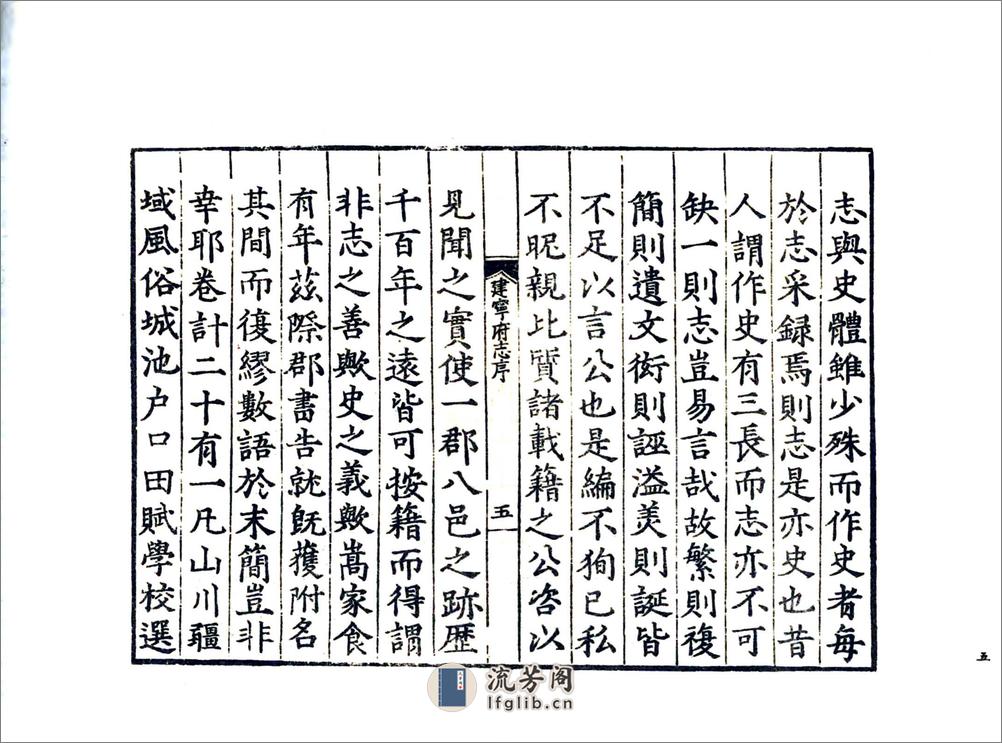 志與史體雖少殊而作史者每
於志采録焉則志是亦史也昔
人謂作史有三長而志亦不可
缺一則志豈易言哉故繁則複
簡則遺文衒則誣溢美則誕皆
不足以言公也是編不狥己私
不昵親比質諸載籍之公咨以
建寧府志序
五
見聞之實使一郡八邑之跡歷
千百年之遠皆可按籍而得謂
非志之善歟史之義歟嵩家食
有年茲際郡書告就旣獲附名
其間而復繆數語於末簡豈非
幸耶卷計二十有一凡山川疆
域風俗城池户口田賦學校選
五
流芳阁
lfglib.cn